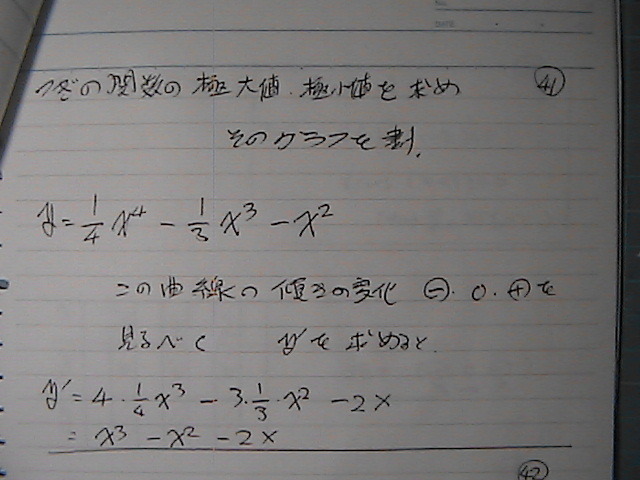 つぎの関数の極大値.極小値を求め ㊶
そのグラフを書け.
y = 1/4 x⁴ - 1/3 x³ - x²
この曲線の傾きの変化 ⊖.0.⊕を
見るべく y'を求めると.
y' = 4・1/4 x³ - 3・1/3・x² - 2x
= x³ - x² - 2x
㊷